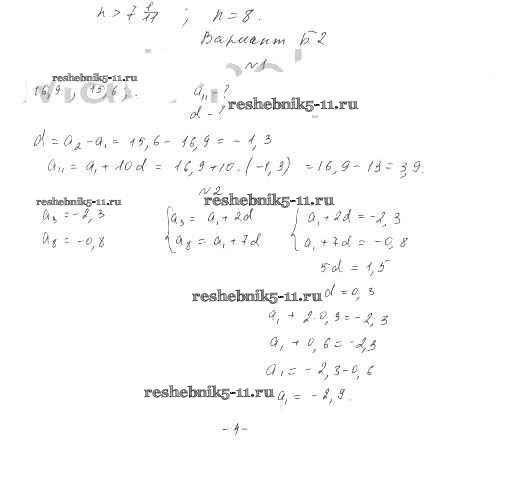 n > 7 1/17 ; n = 8.
Вариант Б2
№1
reshebnik5-11.ru
16,9 ; 15,6 ; . a₁₁ - ?
reshebnik5-11.ru
d - ?
d = a₂ - a₁ = 15,6 - 16,9 = -1,3
a₁₁ = a₁ + 10d = 16,9 + 10 · (-1,3) = 16,9 - 13 = 3,9.
№2
reshebnik5-11.ru reshebnik5-11.ru
a₃ = -2,3 { a₃ = a₁ + 2d { a₁ + 2d = -2,3
a₈ = -0,8 a₈ = a₁ + 7d a₁ + 7d = -0,8
5d = 1,5
reshebnik5-11.ru d = 0,3
a₁ + 2·0,3 = -2,3
a₁ + 0,6 = -2,3
a₁ = -2,3 - 0,6
reshebnik5-11.ru a₁ = -2,9.
- 4 -